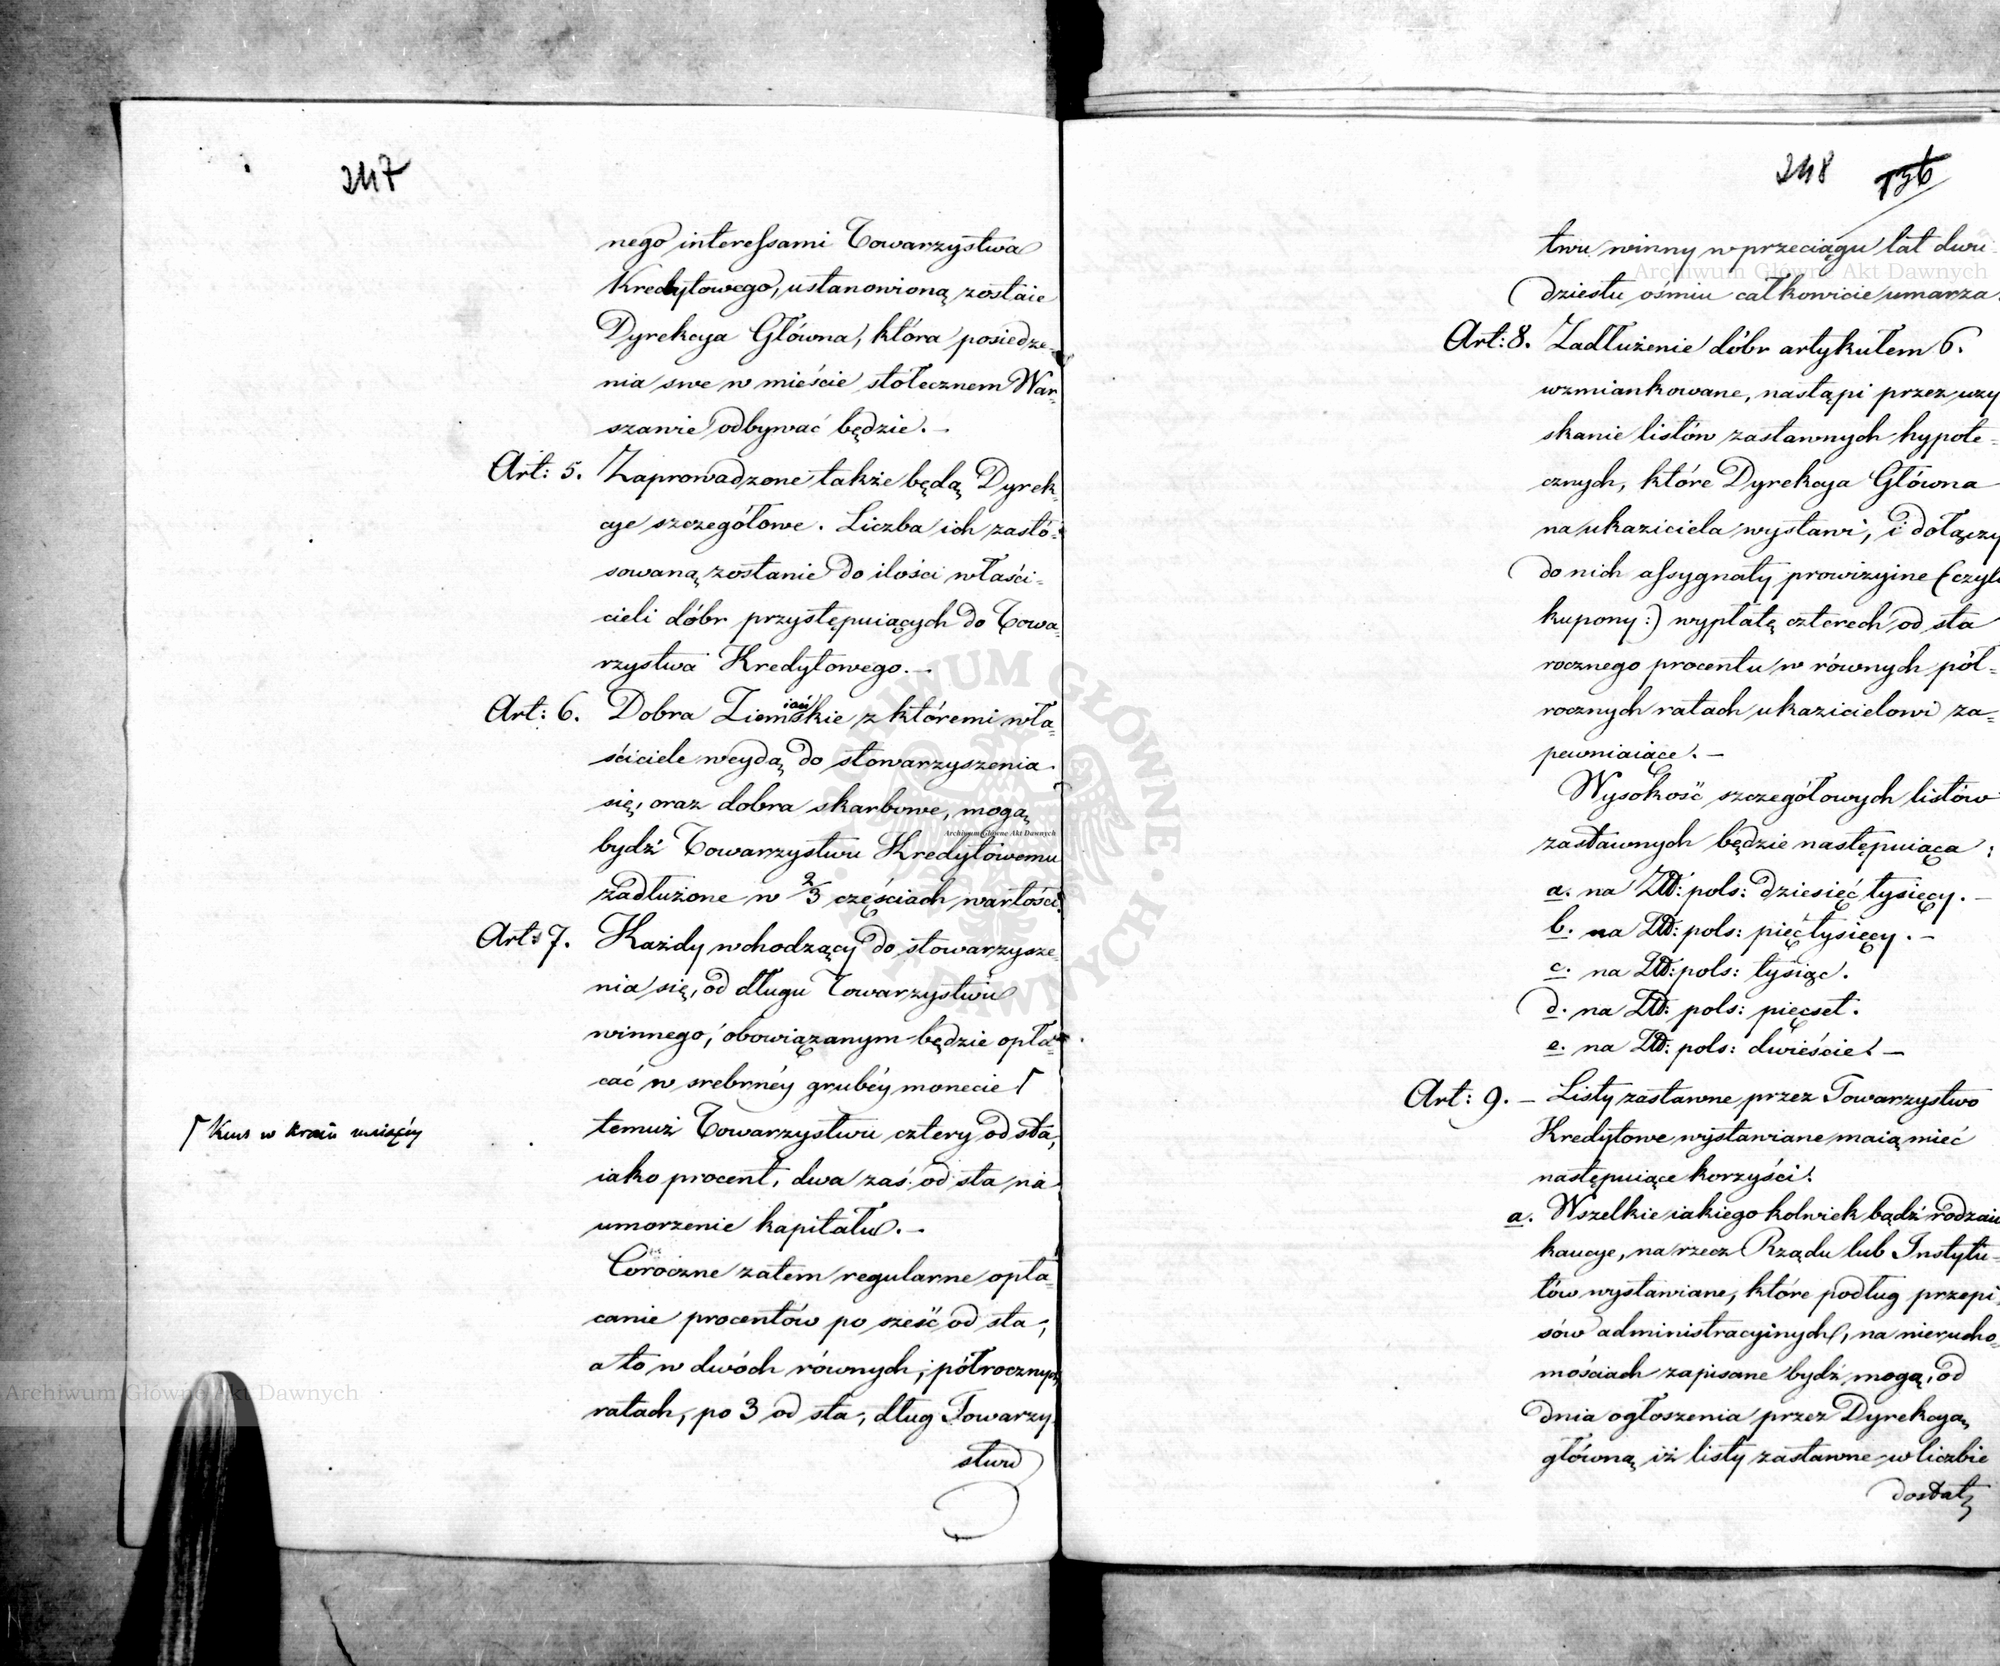 247
nego interessami Towarzystwa
Kredytowego, ustanowioną zostaie
Dyrekcya Główna, która posiedze-
nia swe w mieście stołecznem War-
szawie odbywać będzie. —
Art: 5. Zaprowadzone także będą Dyrek-
cye szczegółowe. Liczba ich zastó-
sowaną zostanie do ilości właści-
cieli dóbr przystępuiących do Towa-
rzystwa Kredytowego. —
Art: 6. Dobra Ziemiańskie z któremi wła-
ściciele weydą do stowarzyszenia
się, oraz dobra skarbowe, mogą
bydź Towarzystwu Kredytowemu
zadłużone w 2/3 częściach wartości.
Art: 7. Każdy wchodzący do stowarzysze-
nia się, od długu Towarzystwu
winnego, obowiązanym będzie opła-
cać w srebrnéy grubéy monecie ſ
ſ Kurs w Kraiu maiącéy
temuż Towarzystwu cztery od sta,
iako procent, dwa zaś od sta na
umorzenie kapitału. —
Coroczne zatem regularne opła-
canie procentów po sześć od sta,
a to w dwóch równych, półrocznych
ratach, po 3 od sta, dług Towarzy-
stwu
248 136
twu winny w przeciągu lat dwu-
dziestu ośmiu całkowicie umarza.
Art: 8. Zadłużenie dóbr artykułem 6.
wzmiankowane, nastąpi przez uzy
skanie listów zastawnych hypote-
cznych, które Dyrekcya Główna
na ukaziciela wystawi, i dołączy
do nich assygnaty prowizyine (czyli
kupony:) wypłatę czterech od sta
rocznego procentu w równych pół-
rocznych ratach ukazicielowi za-
pewniaiące. —
Wysokość szczegółowych listów
zastawnych będzie następuiąca:
a. na Złł: pols: dziesięć tysięcy. —
b. na Złł: pols: pięć tysięcy. —
c. na Złł: pols: tysiąc.
d. na Złł: pols: pięcset.
e. na Złł: pols: dwieście. —
Art: 9. — Listy zastawne przez Towarzystwo
Kredytowe wystawiane maią mieć
następuiące korzyści.
a. Wszelkie iakiego kolwiek bądź rodzaiu
kaucye, na rzecz Rządu lub Instytu-
tów wystawiane, które podług przepi-
sów administracyinych, na nierucho-
mościach zapisane bydź mogą, od
dnia ogłoszenia przez Dyrekcyą
główną iż listy zastawne w liczbie
dostat
Archiwum Główne Akt Dawnych
Archiwum Główne Akt Dawnych
Archiwum Główne Akt Dawnych
ARCHIWUM GŁÓWNE AKT DAWNYCH